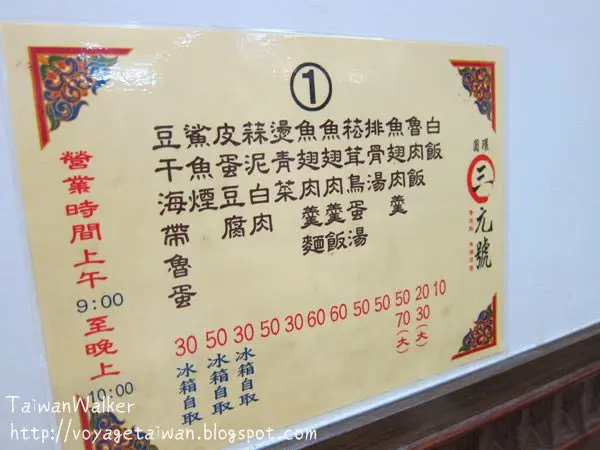 ①
圓環
三元號
白飯
魯肉飯
魚翅肉羹
排骨湯
菘茸鳥蛋湯
魚翅肉羹飯
魚翅肉羹麵
燙青菜
蒜泥白肉
皮蛋豆腐
鯊魚煙
豆干海帶魯蛋
30 50 30 50 30 60 60 50 50 50 20 10
70(大) 30(大)
冰箱自取
冰箱自取
冰箱自取
營業時間上午9:00至晚上10:00
TaiwanWalker
http://voyagetaiwan.blogspot.com